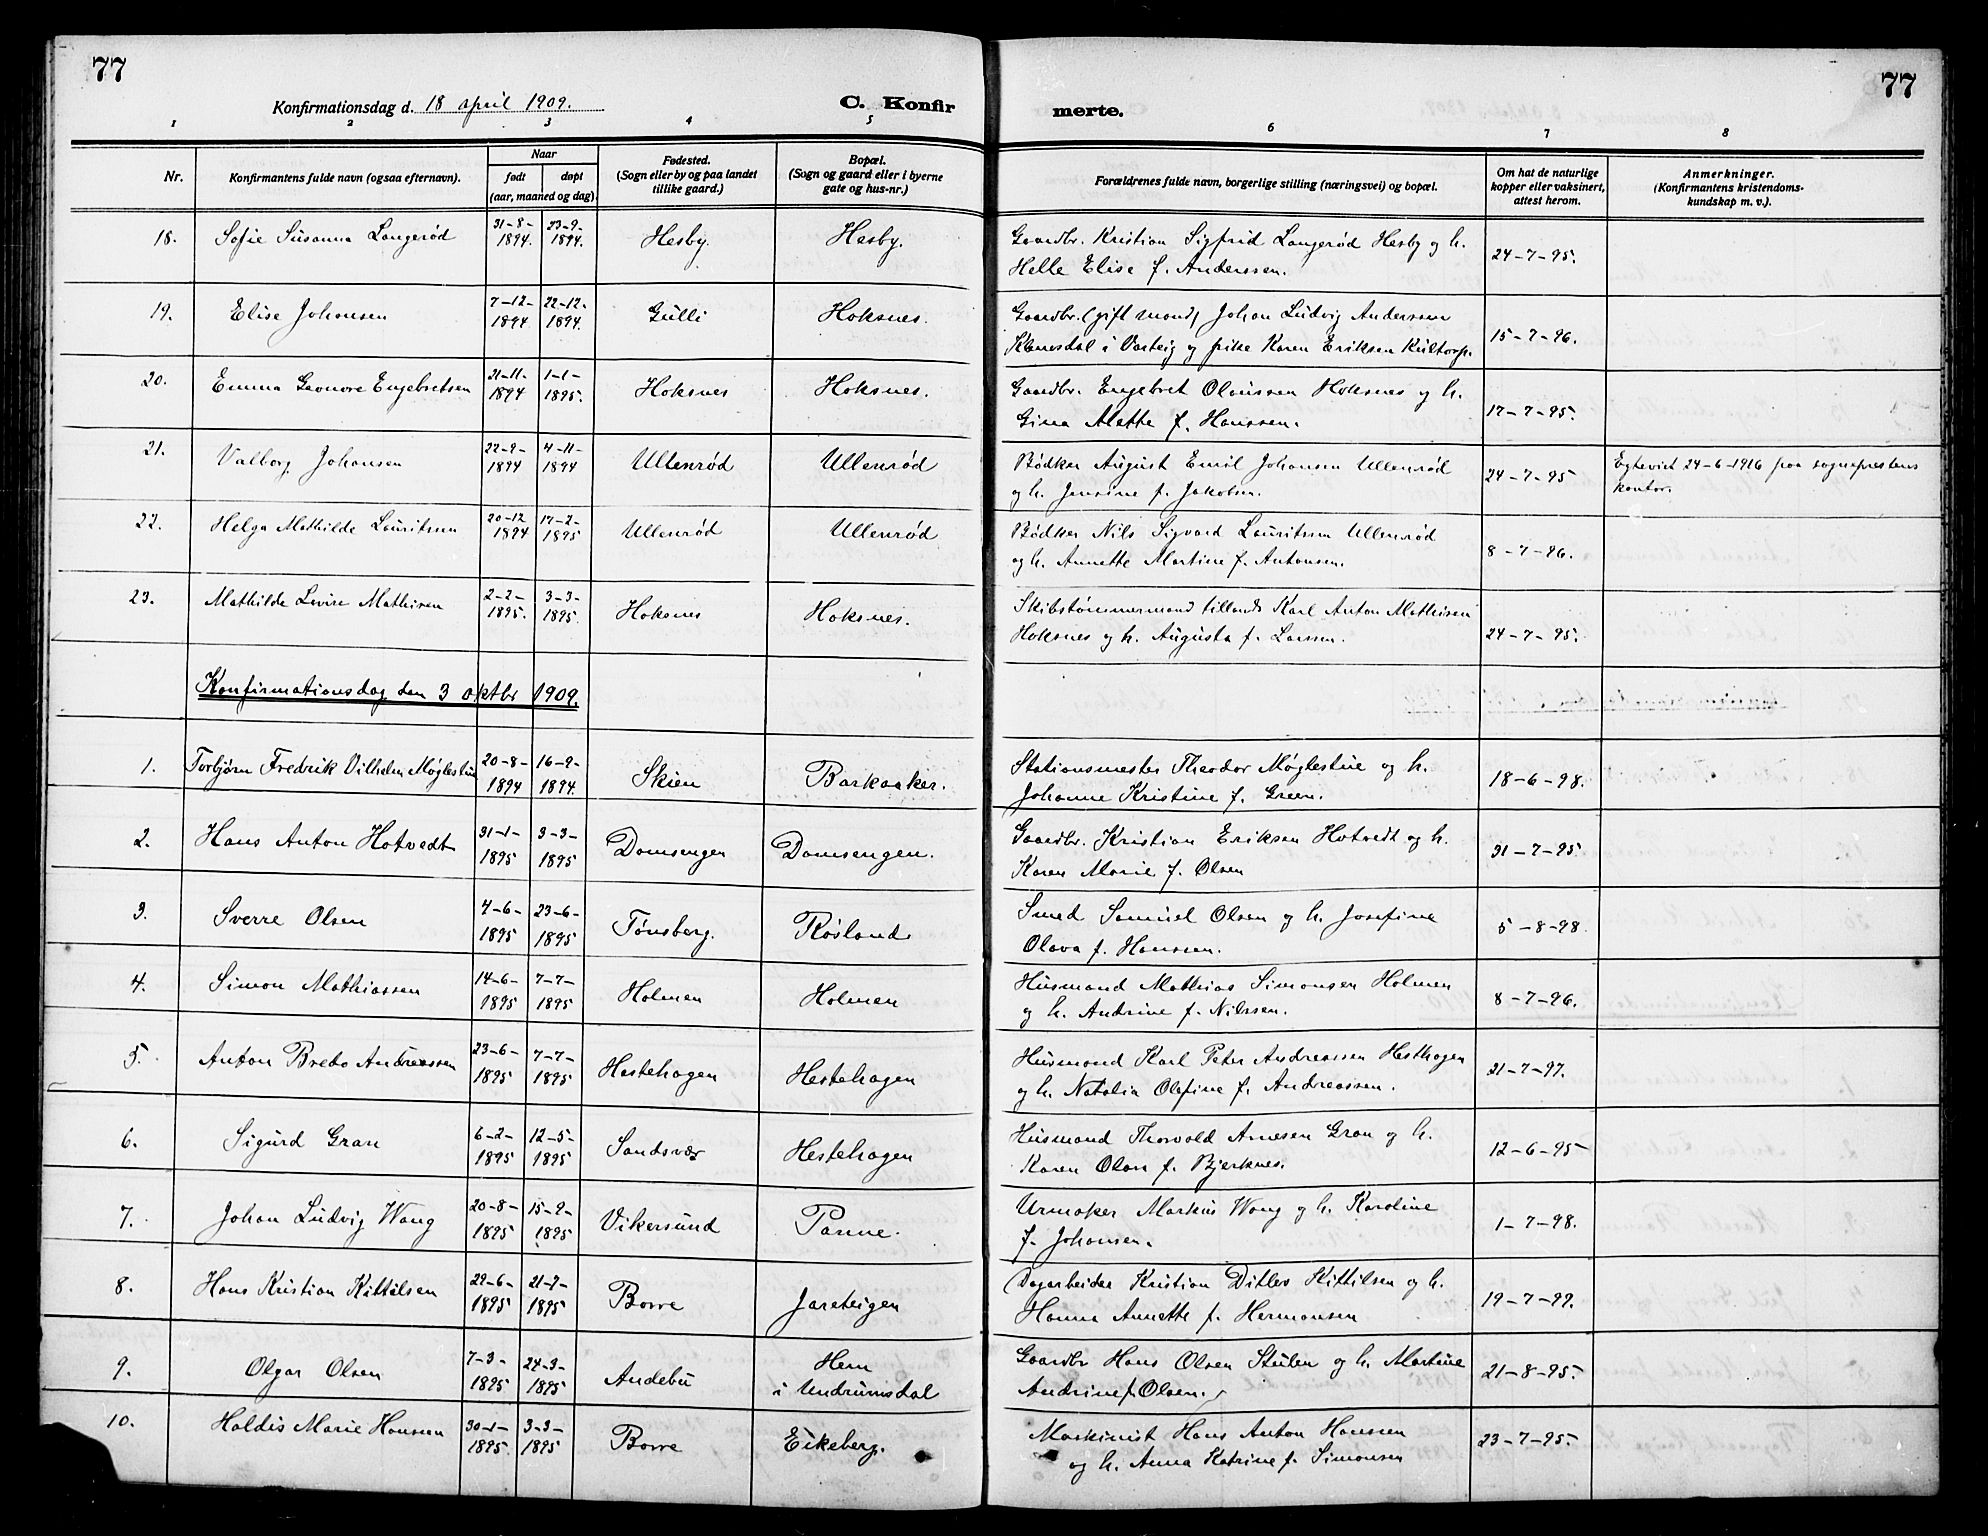 77
77
Konfirmationsdag d. 18 april 1909.
C. Konfir
merte.
1 2 3 4 5 6 7 8
Nr.
Konfirmantens fulde navn (ogsaa efternavn).
Naar
født
døpt
(aar, maaned og dag).
Fødested.
(Sogn eller by og paa landet
tillike gaard.)
Bopæl.
(Sogn og gaard eller i byerne
gate og hus-nr.)
Forældrenes fulde navn, borgerlige stilling (næringsvei) og bopæl.
Om hat de naturlige
kopper eller vaksinert,
attest herom.
Anmerkninger.
(Konfirmantens kristendoms-
kundskap m. v.).
18. Sofie Susanna Langerød 31-8-1894. 23-9-1894. Hesby. Hesby. Gaardbr. Kristian Sigfrid Langerød Hesby og h. 24-7-95.
Helle Elise f. Anderssen.
19. Elise Johansen 7-12-1894 22-12-1894. Gulli Hoksnes. Gaardbr. (gift mand) Johan Ludvig Anderssen 15-7-96.
i Varteig og pike Karen Eriksen
20. Emma Leonore Engebretsen 21-11-1894 1-1-1895. Hoksnes Hoksnes. Gaardbr. Engebret Olaussen Hoksnes og h. 17-7-95.
Gina Mathe f. Hanssen.
21. Valborg Johansen 22-9-1894 4-11-1894 Ullenrød Ullenrød Bødker August Emil Johansen Ullenrød 24-7-95 Egteviet 24-6-1916 paa sogneprestens
og h. Jensine f. Jakobsen. kontor.
22. Helga Mathilde Lauritssen 20-12 1894 17-2-1895 Ullenrød Ullenrød Bødker Nils Sigvard Lauritssen Ullenrød 8-7-96.
og h. Annette Martine f. Antonsen.
23. Mathilde Lovise Mathisen 2-2-1895. 3-3-1895. Hoksnes Hoksnes. Skibstømmermand tillands Karl Anton Mathisen 24-7-95.
Hoksnes og h. Augusta f. Larssen.
Konfirmationsdag den 3 oktbr 1909.
1. Torbjørn Fredrik Vilhelm Møglestue 20-8-1894 16-9-1894. Skien Barkaaker. Stationsmester Theodor Møglestue og h. 18-6-98.
Johanne Kristine f. Green.
2. Hans Anton Hotvedt 31-1-1895 3-3-1895 Domsengen Domsengen. Gaardbr. Kristian Eriksen Hotvedt og h. 31-7-95
Karen Marie f. Olsen
3. Sverre Olsen 4-6-1895 23-6-1895 Tønsberg. Røsland. Smed Samuel Olsen og h. Josefine 5-8-98.
Olava f. Hanssen.
4. Simon Mathiassen 14-6-1895 7-7-1895 Holmen Holmen Husmand Mathias Simonsen Holmen 8-7-96.
og h. Andrine f. Nilssen.
5. Anton Bredo Andreassen 23-6-1895 7-7-1895 Hestehagen Hestehagen Husmand Karl Peter Andreassen Hesthagen 21-7-97.
og h. Natalia Olefine f. Andreassen.
6. Sigurd Gran 6-2-1895 12-5-1895 Sandsvær Hestehagen Husmand Thorvald Arnesen Gran og h. 12-6-95
Karen Olson f. Bjerknes.
7. Johan Ludvig Wang 20-8-1895 15-9-1895 Vikersund Tanne. Urmaker Markus Wang og h. Karoline 1-7-98.
f. Johansen.
8. Hans Kristian Kittilsen 22-6-1895 21-7-1895 Borre Jareteigen Dagarbeider Kristian Ditlev Kittilsen og h. 19-7-99.
Hanna Annette f. Hermansen
9. Olgar Olsen 7-3-1895 24-3-1895 Andebu Hem Gaardbr Hans Olsen Stulen og h. Martine 21-8-95.
i Undrumsdal Andrine f. Olsen.
10. Haldis Marie Hanssen 30-1-1895. 3-3-1895 Borre Eikeberg. Maskinist Hans Anton Hanssen 23-7-95.
og h. Anna Katrine f. Simonsen